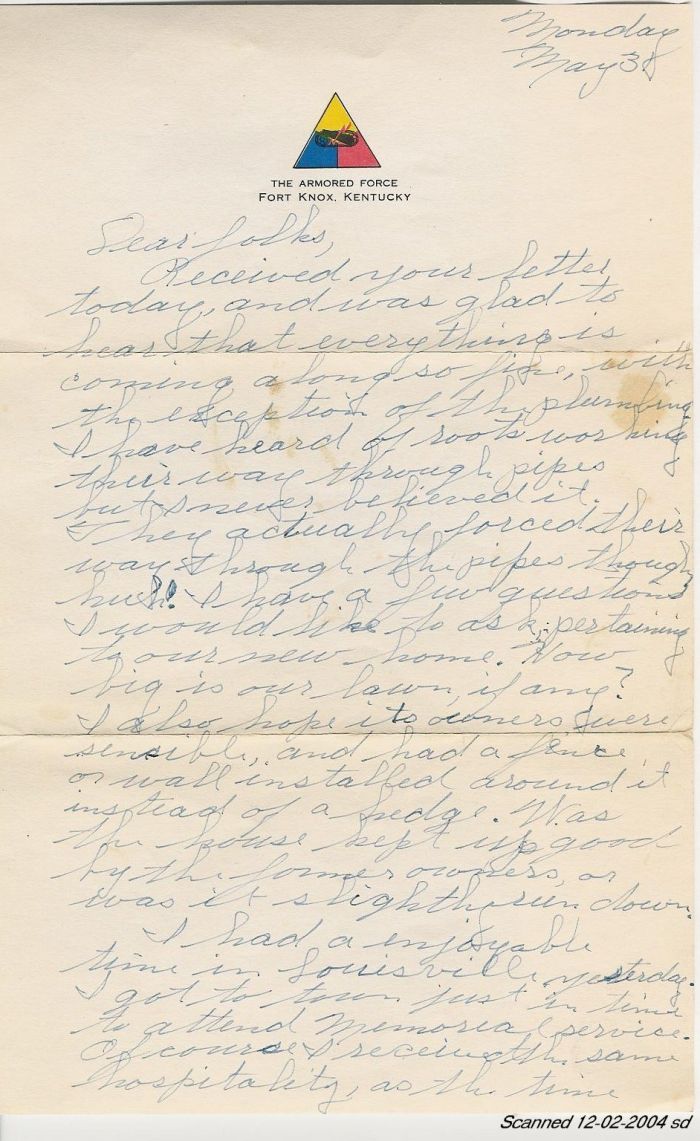 Monday
May 38
THE ARMORED FORCE
FORT KNOX, KENTUCKY
Dear folks,
Received your letter
today, and was glad to
hear that everything is
coming along so fine, with
the exception of the plumbing
I have heard of roots working
their way through pipes
but I never believed it.
They actually forced their
way through the pipes though
huh! I have a few questions
I would like to ask, pertaining
to our new home. How
big is our lawn, if any?
I also hope its owners were
sensible, and had a fence
or wall installed around it
instead of a hedge. Was
the house kept up good
by the former owners, or
was it slightly run down.
I had a enjoyable
time in Louisville yesterday.
I got to town just in time
to attend Memorial service.
Of course I received the same
hospitality, as the time
Scanned 12-02-2004 sd